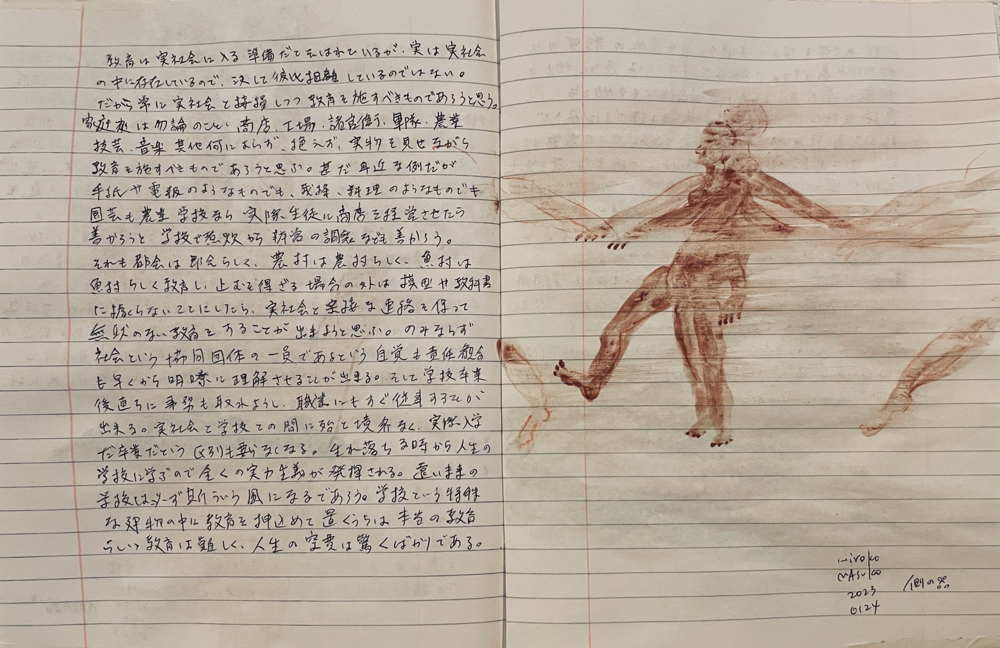 教育は実社会に入る準備だと云はれているが、実は実社会
の中に存在しているので、決して彼此相離しているのではない。
だから常に実社会と接触しつつ教育を施すべきものであろうと思う。
家庭は勿論のこと、商店、工場、諸官衙、軍隊、農業
技芸、音楽其他何によらず、絶えず、実物を見せながら
教育を施すべきものであろうと思ふ。甚だ身近な例だが
手紙や電報のようなものでも、裁縫、料理のようなものでも
園芸も農業 学校なら 実際生徒に商店を経営させたら
善かろうと 学校で 政治の調製なども善かろう。
それも都会は都会らしく、農村は農村らしく、魚村は
魚村らしく教育し、止むを得ざる場合の外は 模型や教科書
に拠らないことにしたら、実社会と密接な連絡を保って
無駄のない教育をすることが出来ようと思ふ。のみならず
社会という協同団体の一員であるという自覚も責任観念
も早くから明瞭に理解させることが出来る。そして学校卒業
後直ちに事務も取れようし、職業にもすぐ従事することが
出来る。実社会と学校との間に殆ど境界なく、実際入学
だ卒業だという区別も要らなくなる。生れ落ちる時から人生の
学校に学ぶので全くの実力主義が発揮される。遠いままの
学校は必ず斯ういう風になるであろう。学校という特殊
な建物の中に教育を押込めて置くうちは本当の教育
らしい教育は難しく、人生の空費は驚くばかりである。
hiroko
MASUKO
2023
0124
側の器